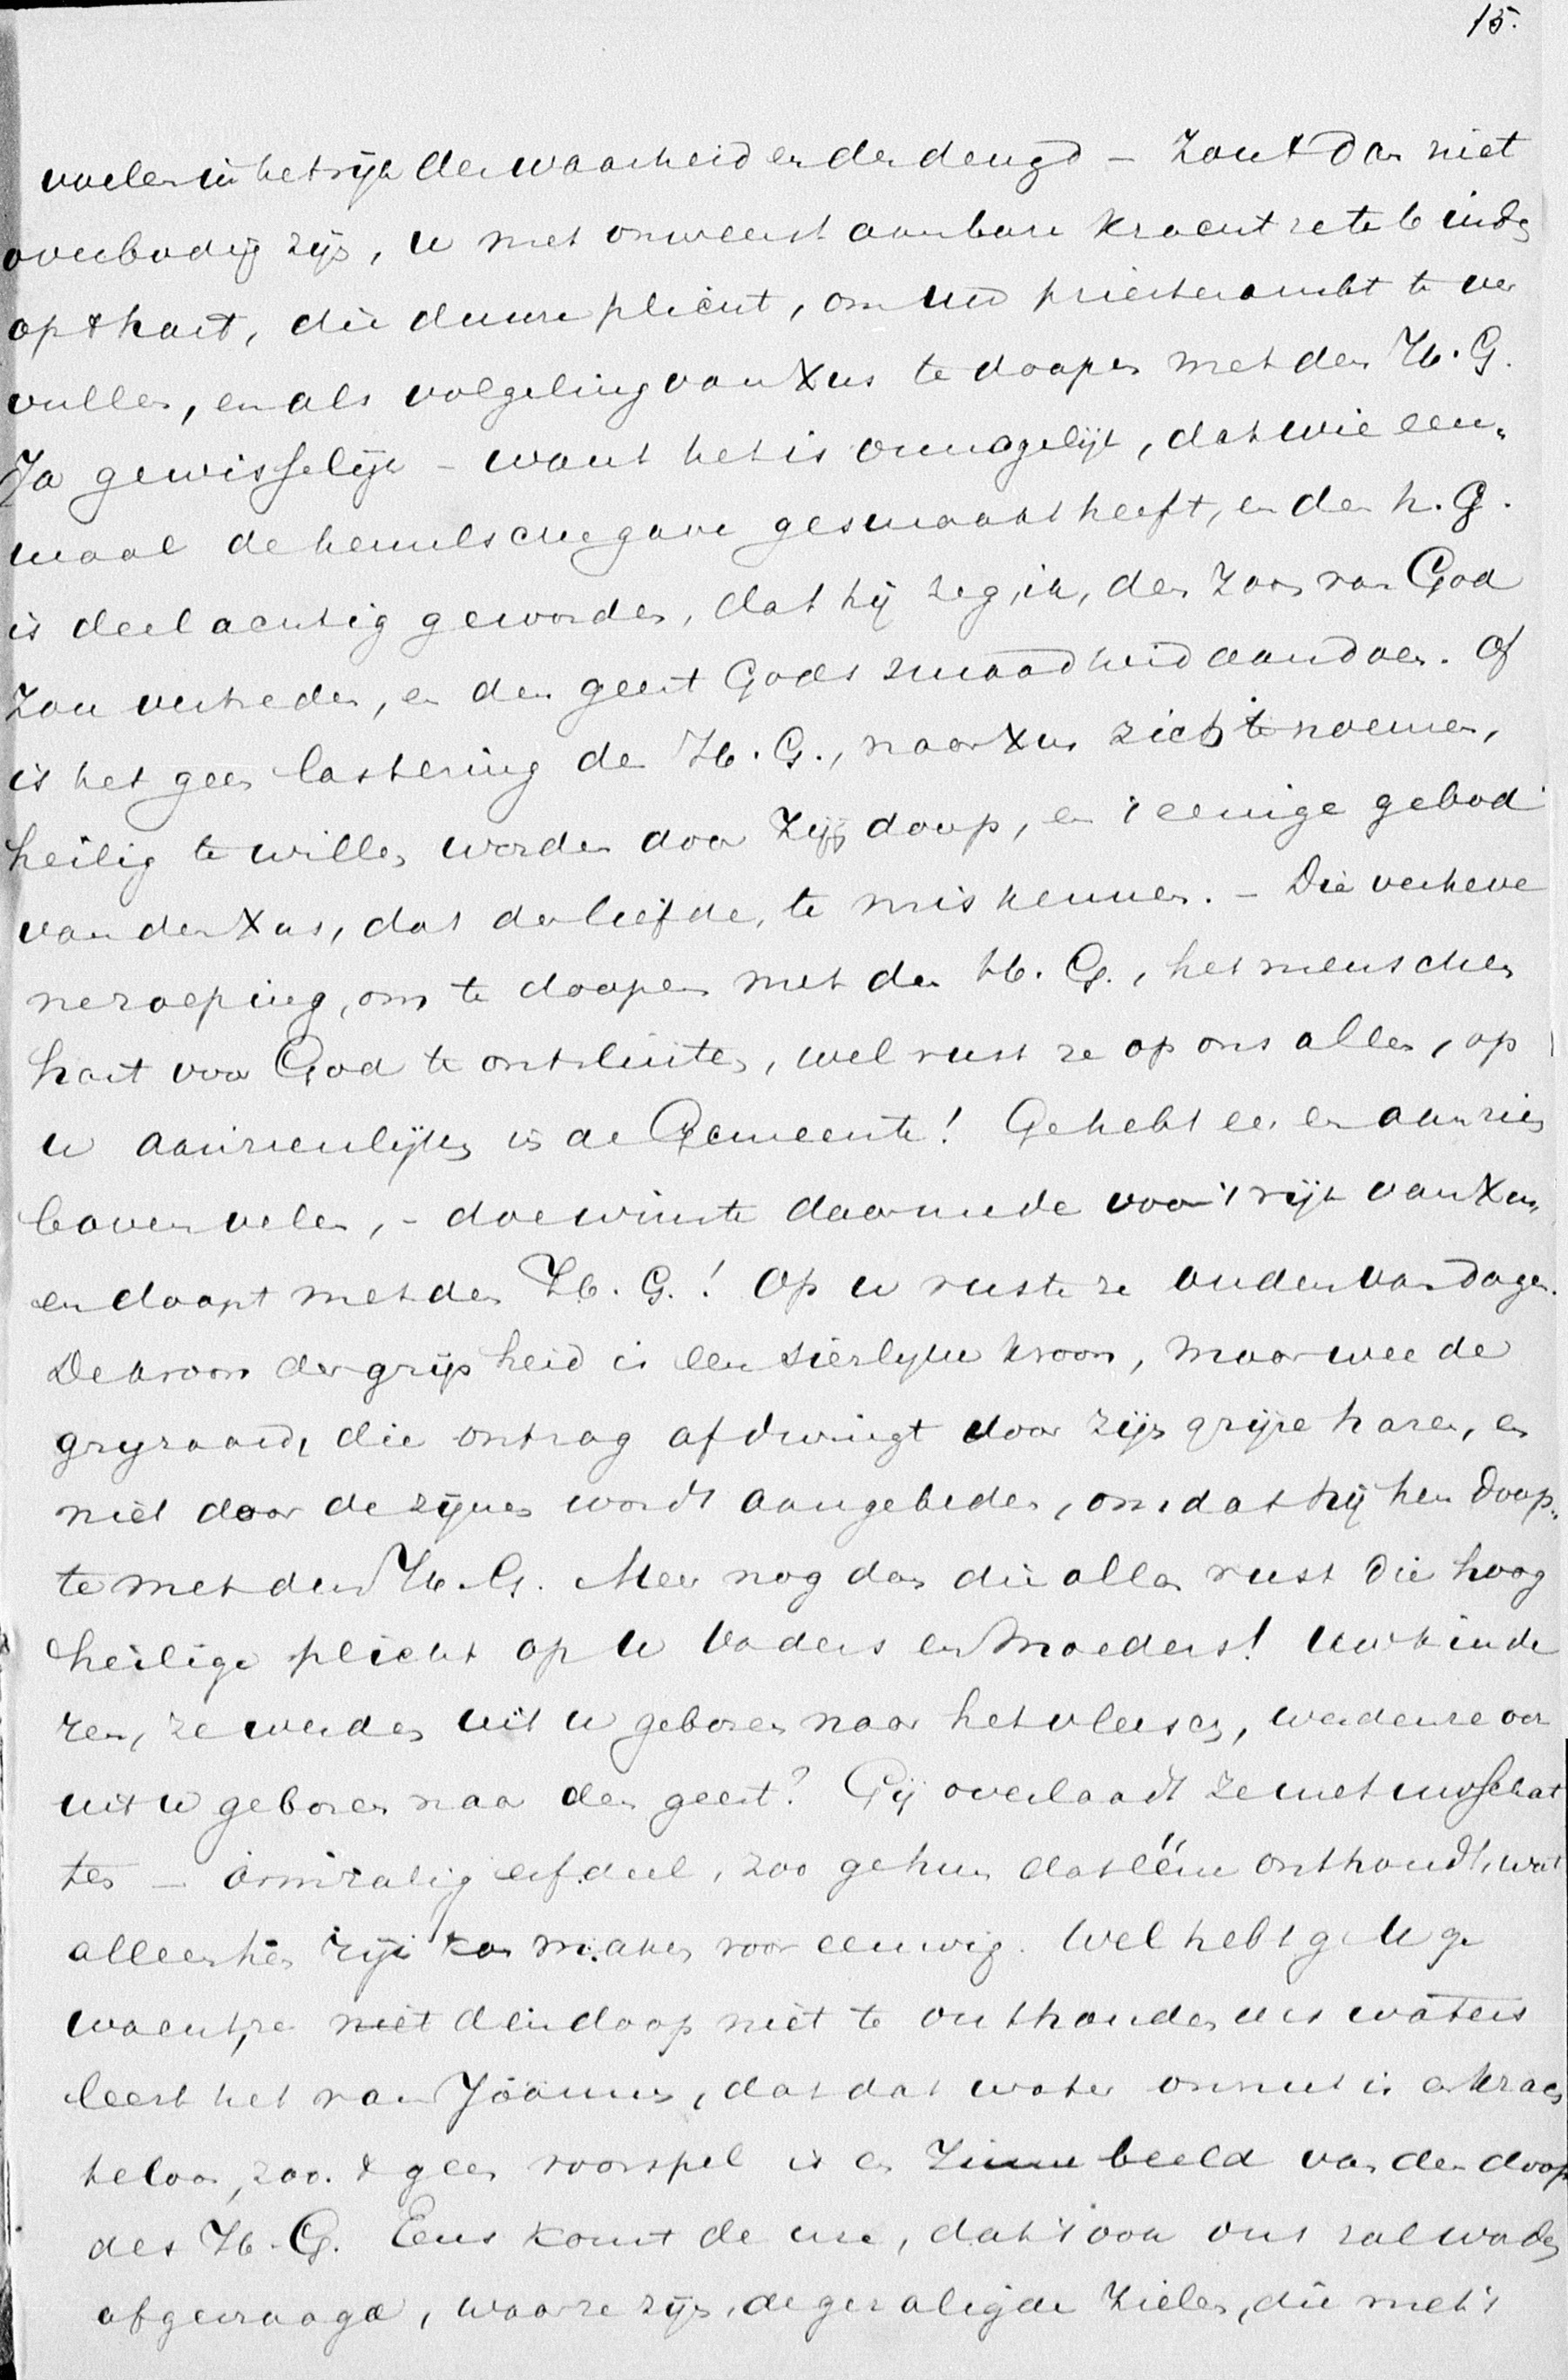 15.
voelen in het rijk der waarheid en der deugd – Zou 't dan niet
overbodig zijn, u met onweerstaanbare kracht ze te binden
op 't hart, die duure plicht, om uw priesterambt te ver
vullen, en als volgeling van Xus te doopen met den H. G.
Ja gewisselijk – want het is onmogelijk, dat wie een„
maal de hemelsche gave gesmaakt heeft, en den h. G.
is deelachtig geworden, dat hij zeg ik, den Zoon van God
zou vertreden, en den geest Gods smaadheid aandoen. Of
is het geen lastering den H. G., naar Xus zich te noemen,
heilig te willen worden door Zijn doop, en 't eenige gebod
van den Xus, dat der liefde, te miskennen. – Die verheve
ne roeping, om te doopen met den H. G., het menschen
hart voor God te ontsluiten, wel rust ze op ons allen, op
u aanzienlijken in de Gemeente! Ge hebt eer en aanzien
boven velen, – doe winste daarmede voor 't rijk van Xus,
en doopt met den H. G.! Op u ruste ze ouden van dagen.
De kroon der grijsheid is een sierlyke kroon, maar wee de
gryzaard, die ontzag afdwingt door zijn grijze haren, en
niet door de zijnen wordt aangebeden, omdat hij hen doop„
te met den H. G. Meer nog dan die allen rust die hoog
heilige plicht op u Vaders en Moeders! Uw kinde
ren, ze werden uit u geboren naar het vleesch, werden ze ook
uit u geboren naar den geest? Gij overlaadt ze met uw schat
ten – armzalig erfdeel, zoo ge hun dat ééne onthoudt, wat
alleen hen rijk kan maken voor eeuwig. Wel hebt ge U ge
wacht, ze niet den doop niet te onthouden des waters
leert het van Joannes, dat dat water onnut is en krach
teloos, zoo 't geen voorspel is en Zinnebeeld van den doop
des H. G. Eens komt de ure, dat 't ook ons zal worden
afgevraagd, waar ze zijn, de gezaligde Zielen, die met 't